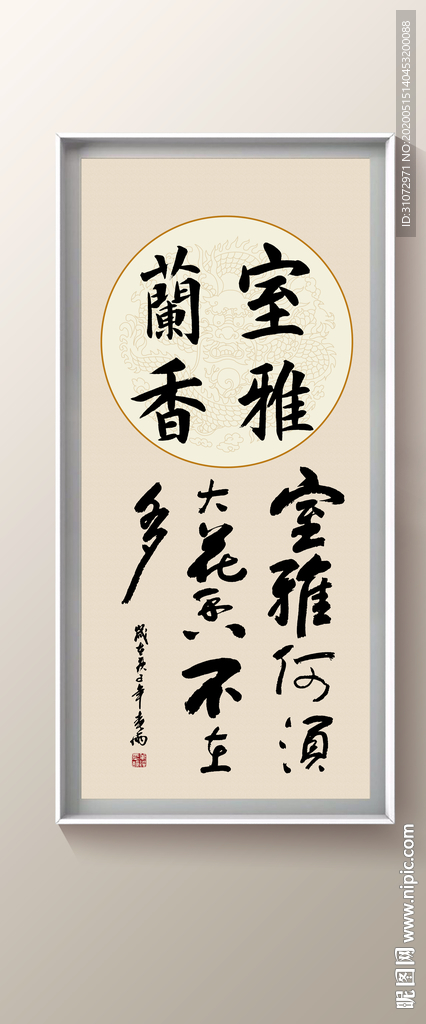 室雅
蘭香
室雅何須
大花香不在
多
歲在癸巳年
ID:31072971 NO:20200515140453200088
昵图网 www.nipic.com